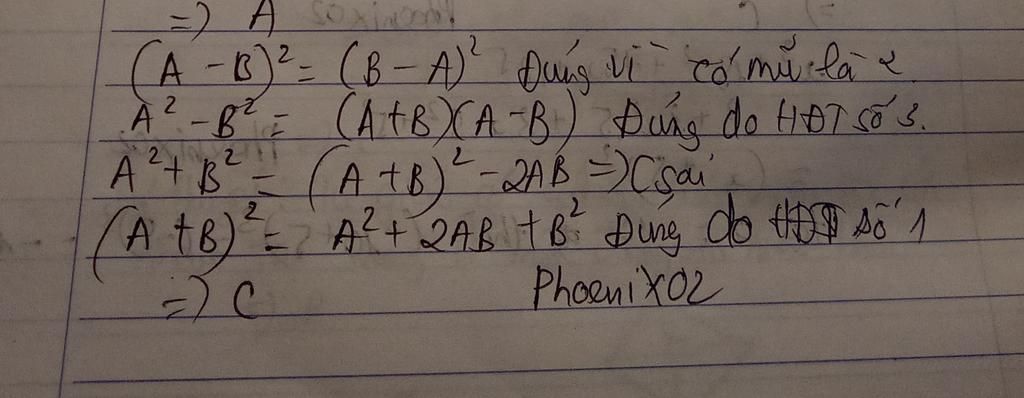 => A
(A - B)² = (B - A)² Đúng vì có mũ là 2
A² - B² = (A+B)(A-B) Đúng do HĐT số 3.
A² + B² = (A + B)² - 2AB => C sai
(A + B)² = A² + 2AB + B² Đúng do HĐT số 1
=> C PhoeniX02